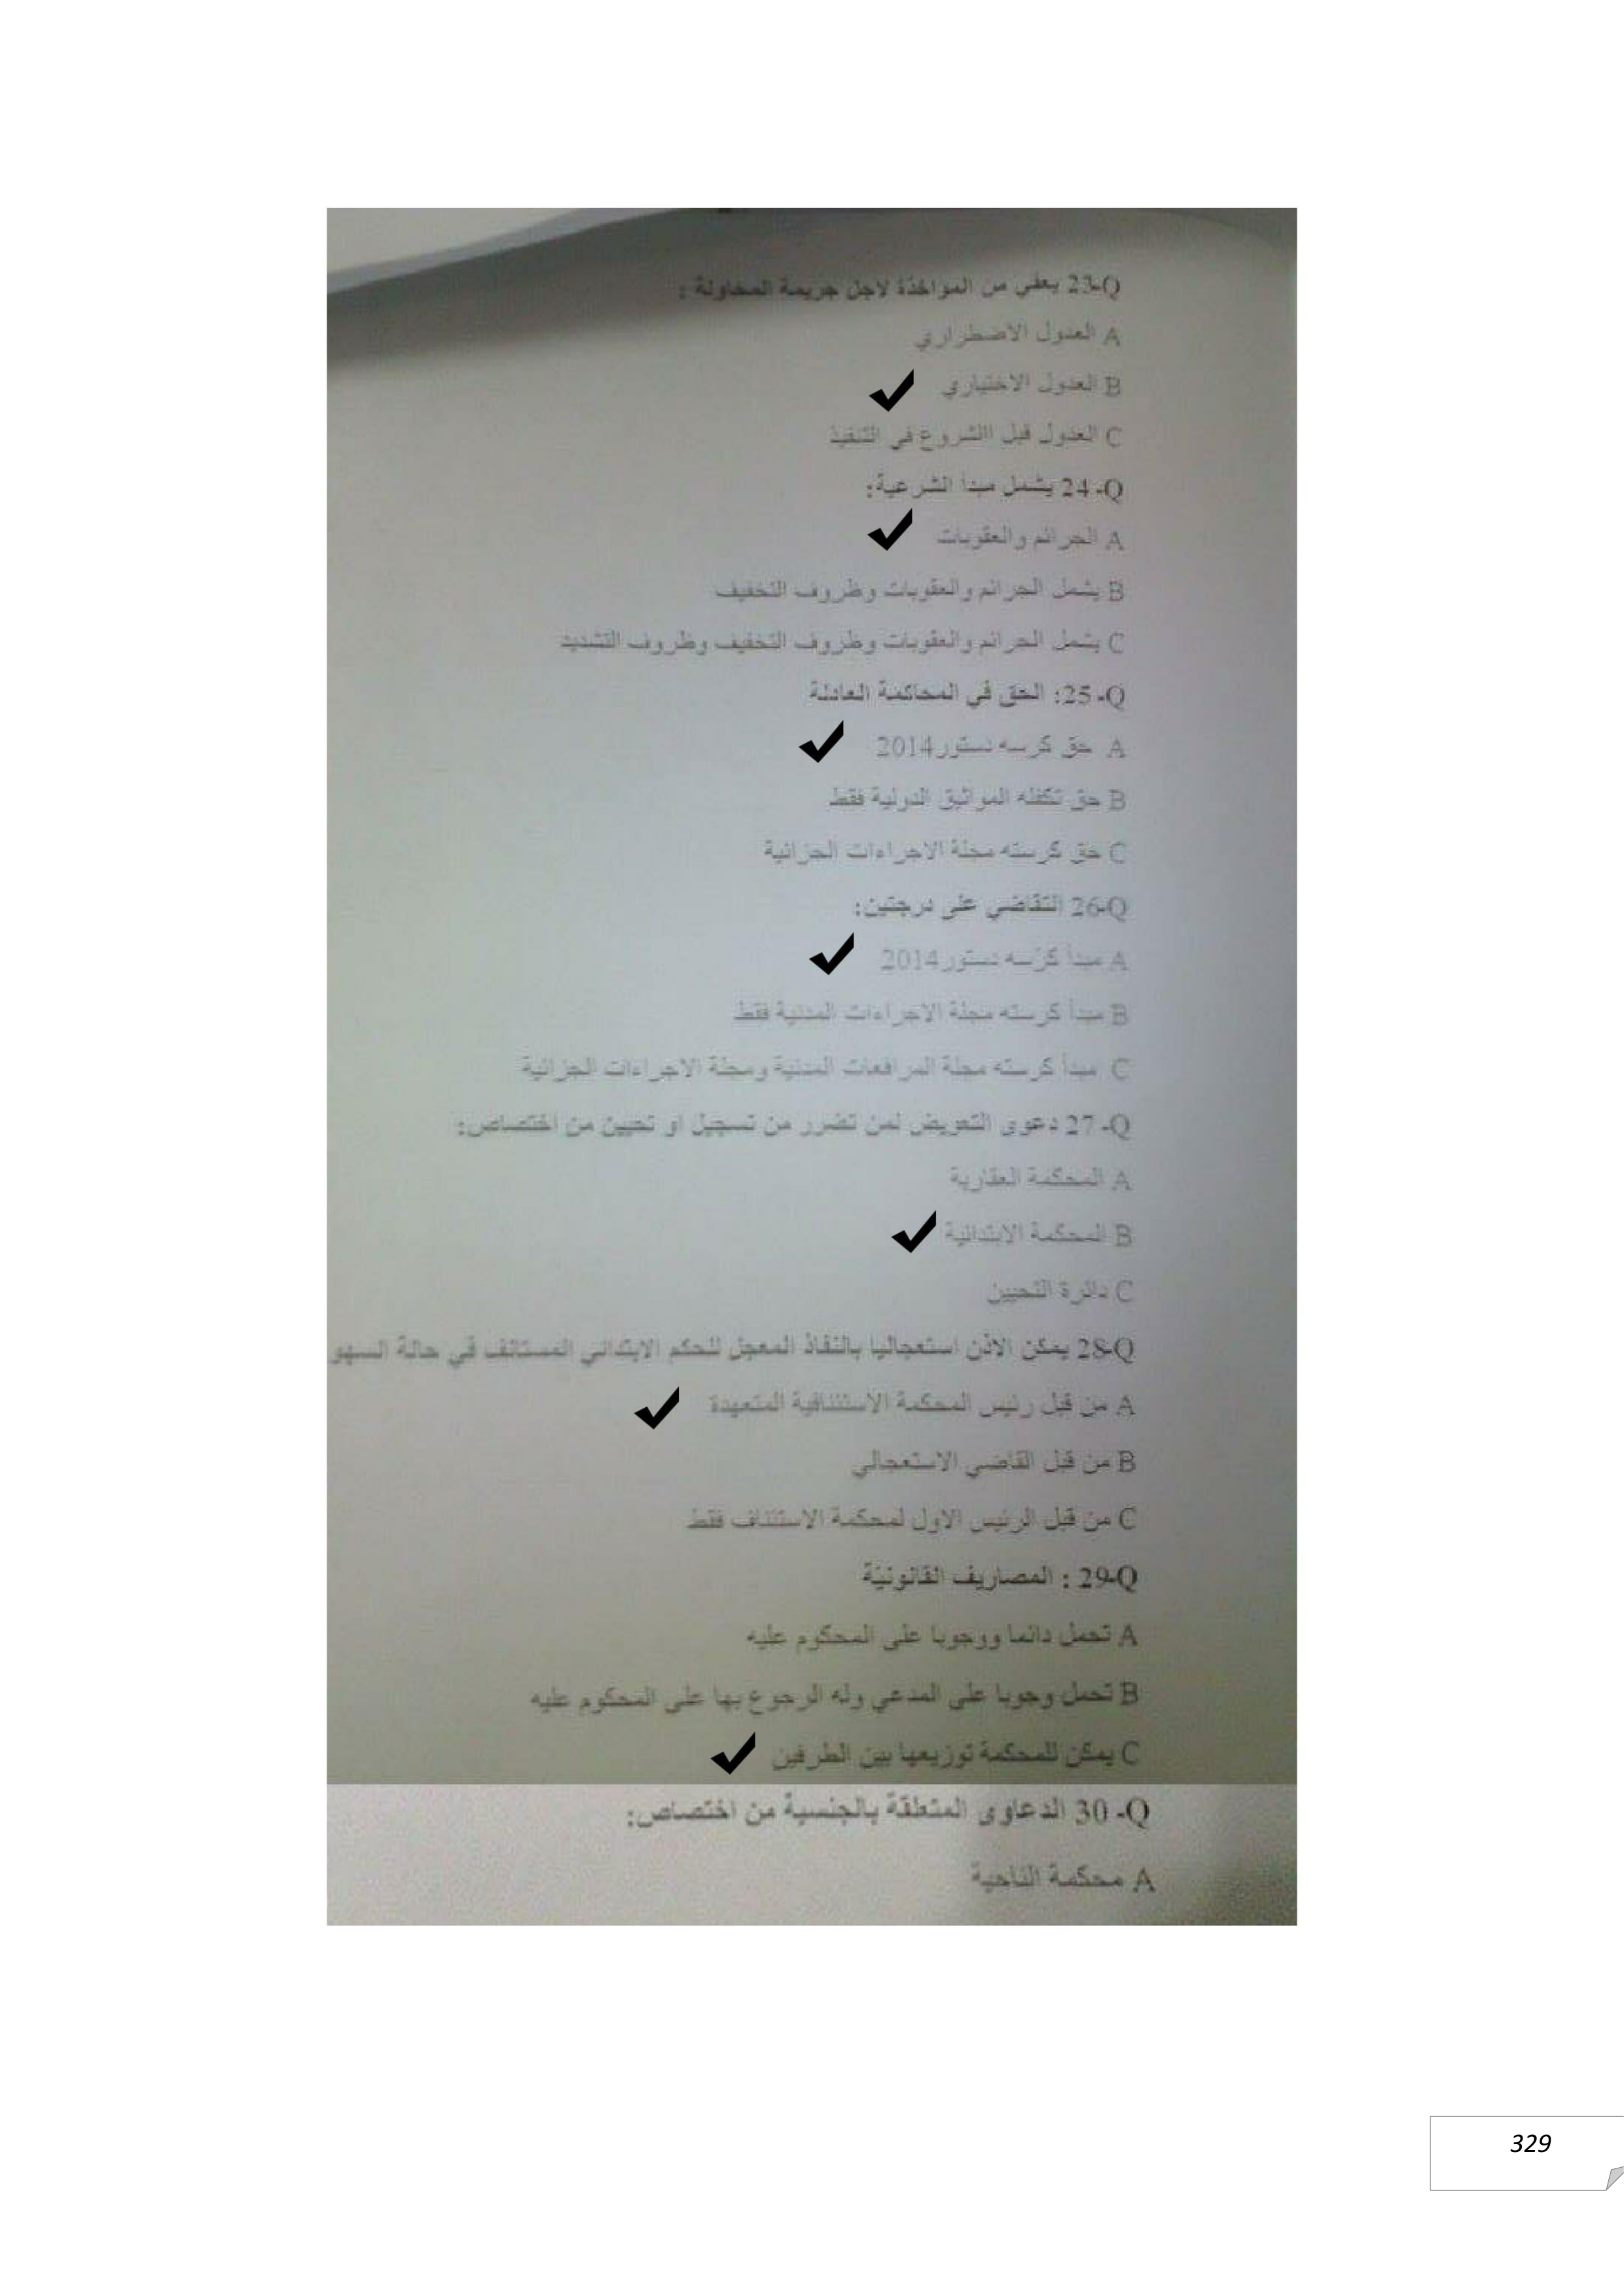 Q-23 يعفي من المؤاخذة لاجل جريمة المحاولة :
A العدول الاضطراري
B العدول الاختياري ✔
C العدول قبل االشروع في التنفيذ
Q- 24 يشمل مبدأ الشرعية:
A الجرائم والعقوبات ✔
B يشمل الجرائم والعقوبات وظروف التخفيف
C يشمل الجرائم والعقوبات وظروف التخفيف وظروف التشديد
Q- 25: الحق في المحاكمة العادلة
A حق كرسه دستور2014 ✔
B حق تكفله المواثيق الدولية فقط
C حق كرسته مجلة الاجراءات الجزائية
Q-26 التقاضي على درجتين:
A مبدأ كرّسه دستور2014 ✔
B مبدأ كرسته مجلة الاجراءات المدنية فقط
C مبدأ كرسته مجلة المرافعات المدنية ومجلة الاجراءات الجزائية
Q- 27 دعوى التعويض لمن تضرر من تسجيل او تحيين من اختصاص:
A المحكمة العقارية
B المحكمة الابتدائية ✔
C دائرة التحيين
Q-28 يمكن الاذن استعجاليا بالنفاذ المعجل للحكم الابتدائي المستأنف في حالة السهو
A من قبل رئيس المحكمة الاستئنافية المتعهدة ✔
B من قبل القاضي الاستعجالي
C من قبل الرئيس الاول لمحكمة الاستئناف فقط
Q-29 : المصاريف القانونيّة
A تحمل دائما ووجوبا على المحكوم عليه
B تحمل وجوبا على المدعي وله الرجوع بها على المحكوم عليه
C يمكن للمحكمة توزيعها بين الطرفين ✔
Q- 30 الدعاوى المتعلقة بالجنسية من اختصاص:
A محكمة الناحية
329